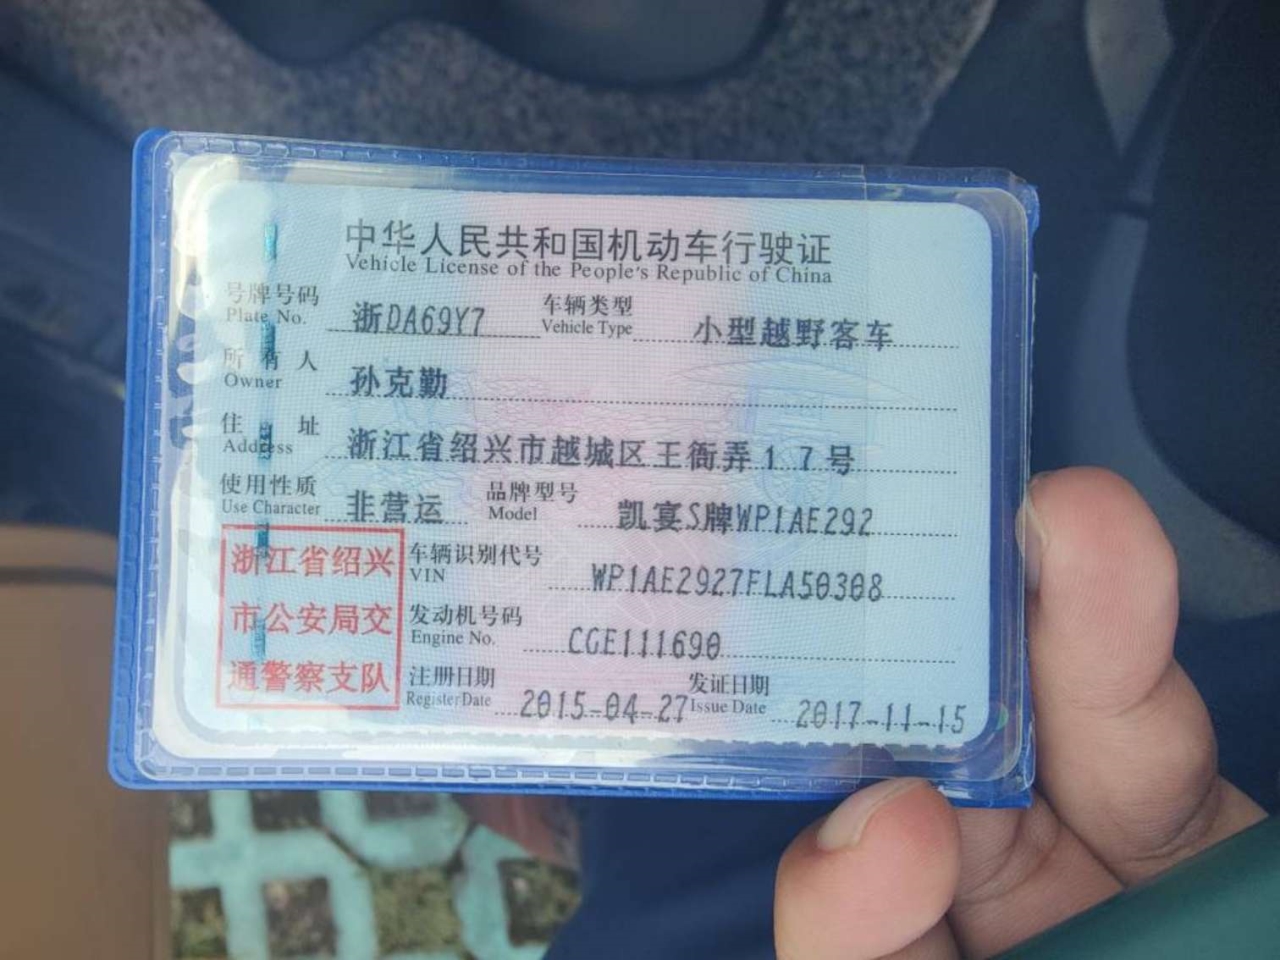 中华人民共和国机动车行驶证
Vehicle License of the People's Republic of China
号牌号码 浙DA69Y7 车辆类型 小型越野客车
Plate No. Vehicle Type
所有人 孙克勤
Owner
住址 浙江省绍兴市越城区王衙弄17号
Address
使用性质 非营运 品牌型号 凯宴S牌WP1AE292
Use Character Model
浙江省绍兴
市公安局交
通警察支队
车辆识别代号 WP1AE2927FLA50308
VIN
发动机号码 CGE111690
Engine No.
注册日期 2015-04-27 发证日期 2017-11-15
Register Date Issue Date